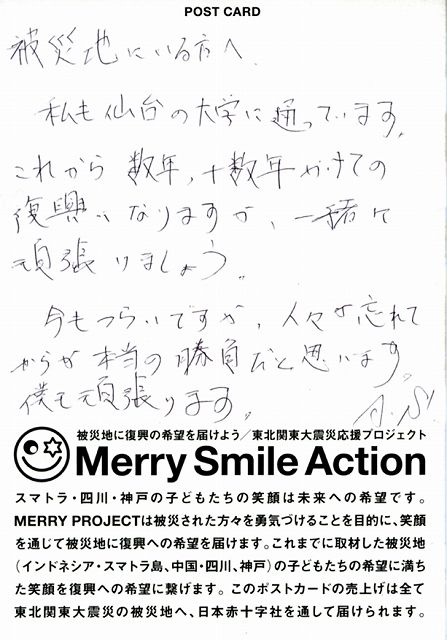 POST CARD
被災地にいる方へ
私も仙台の大学に通っています。
これから数年,十数年かけての
復興になりますが、一緒に
頑張りましょう。
今もつらいですが、人々が忘れて
からが本当の勝負だと思います。
僕も頑張ります。
被災地に復興の希望を届けよう／東北関東大震災応援プロジェクト
Merry Smile Action
スマトラ・四川・神戸の子どもたちの笑顔は未来への希望です。
MERRY PROJECTは被災された方々を勇気づけることを目的に、笑顔
を通じて被災地に復興への希望を届けます。これまでに取材した被災地
（インドネシア・スマトラ島、中国・四川、神戸）の子どもたちの希望に満ち
た笑顔を復興への希望に繋げます。このポストカードの売上げは全て
東北関東大震災の被災地へ、日本赤十字社を通して届けられます。